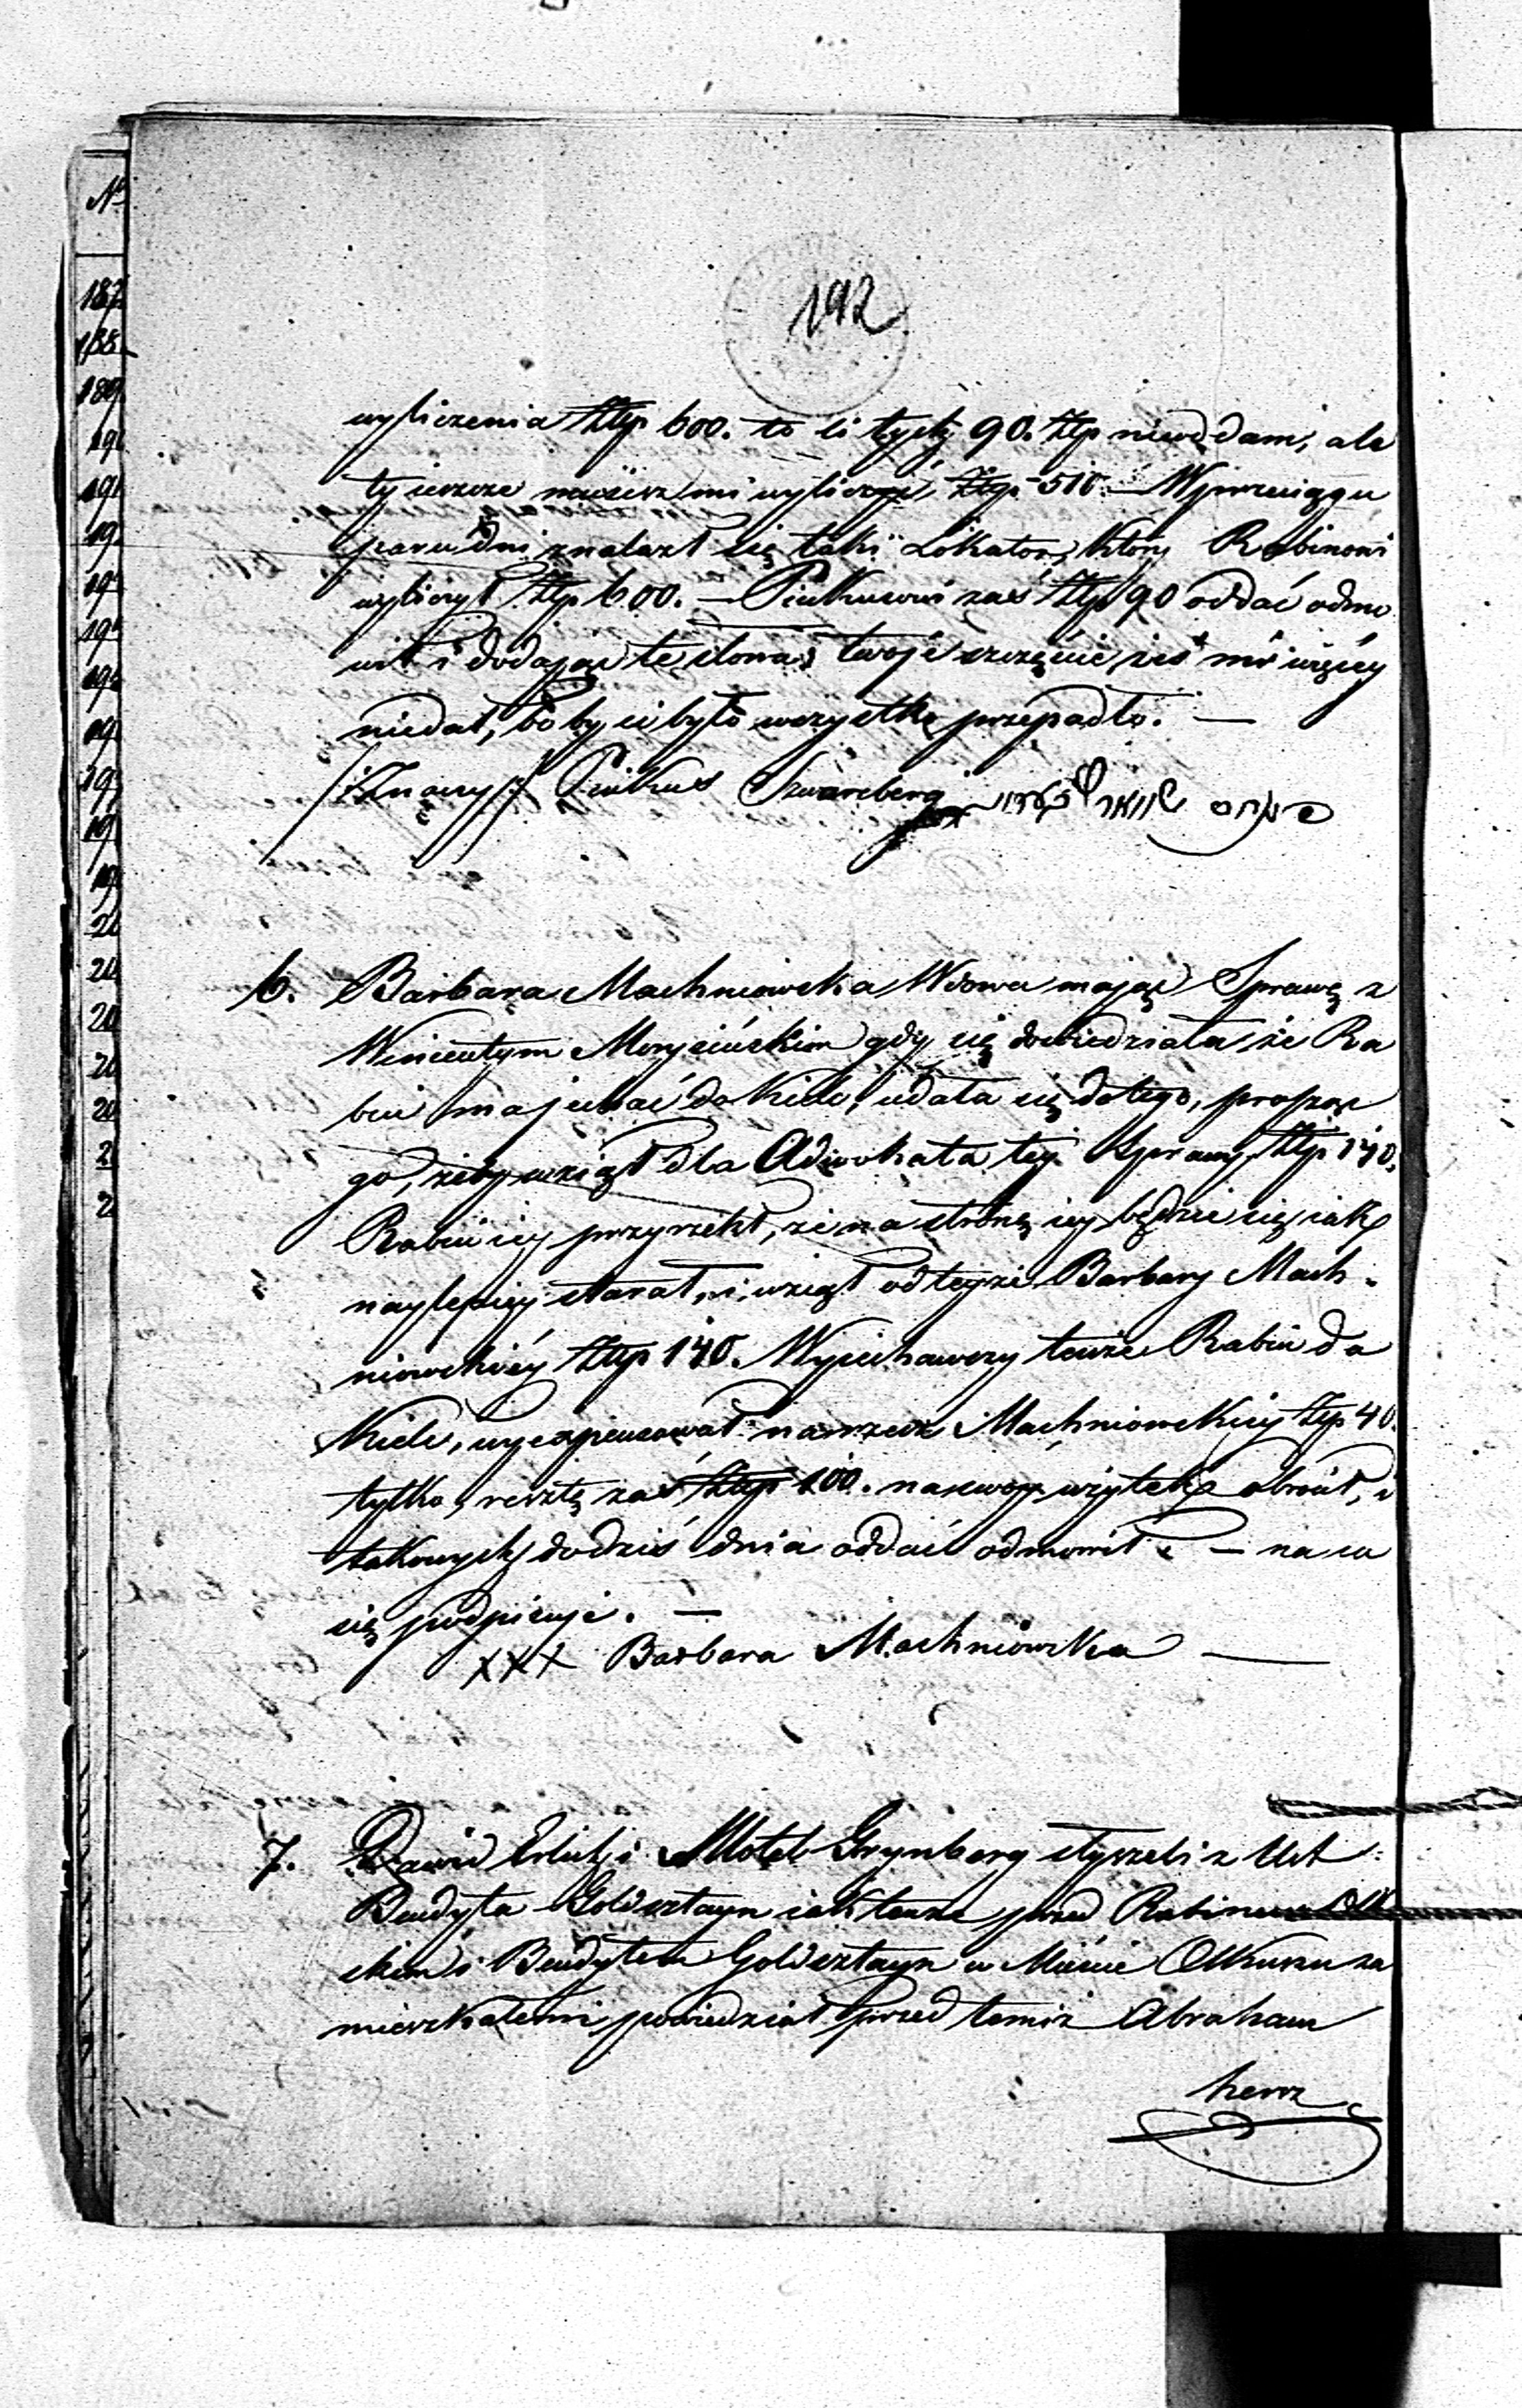 192
wyliczenia Złp 600. to ci tych 90. Złp nieoddam, ale
ty ieszcze musisz mi wyliczyć Złp 510 — Wprzeciągu
paru dni znalazł się taki Lokator, który Rabinowi
wyliczył Złp 600. — Pinkusowi zaś Złp 90 oddać odmó
wił i dodając te słowa; twoje szczęście żeś mi więcéy
niedał, boby ci było wszystko przepadło. —
/:Znaczy:/ Pinkus Szwarcberg
6. Barbara Machniowska Wdowa mając Sprawę z
Wincentym Morycińskim gdy się dowiedziała że Ra
bin ma jechać do Kielc, udała się do tego, prosząc
go, żeby wziął dla Adwokata tej Sprawy Złp 140.
Rabin iey przyrzekł, że na stronę iey będzie się iak
naylepiey starał, i wziął od teyże Barbary Mach-
niowskiéy Złp 140. Wyiechawszy tenże Rabin do
Kielc, wyexpensował na rzecz Machniowskiey Złp 40.
tylko, resztę zaś Złp 100. na swoy użytek obrócił, i
takowych do dziś dnia oddać odmówił — na co
się podpisuje. —
XXX Barbara Machniowska —
7. Dawid Erlich i Motel Grynberg słyszeli z Ust
Bendyta Goldsztayn iak tenże przed Rabinem
skim i Bendytem Goldsztayn w Mieście Olkuszu za
mieszkałemi, powiedział przed temiż Abraham
hersz
N
187
188
189
2
2